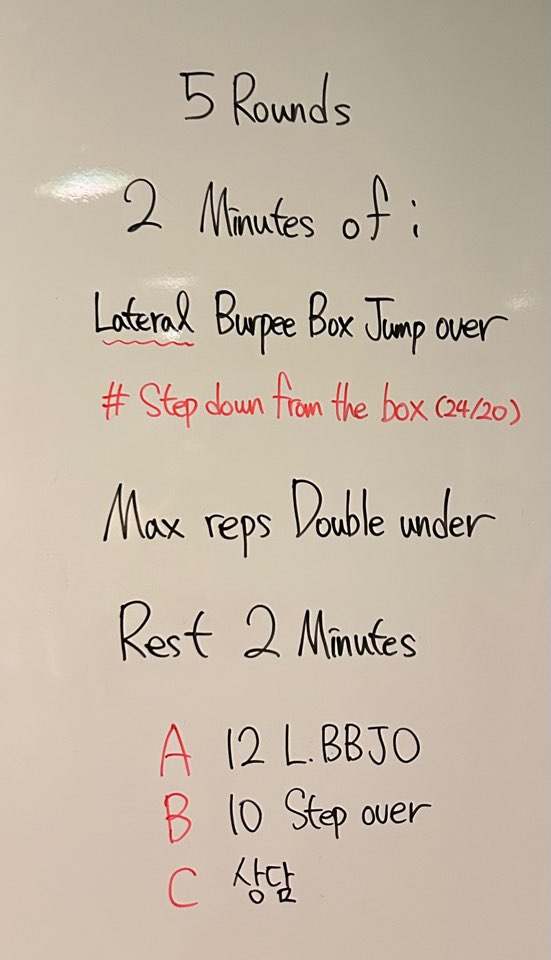 5 Rounds
2 Minutes of :
Lateral Burpee Box Jump over
# Step down from the box (24/20)
Max reps Double under
Rest 2 Minutes
A 12 L.BBJO
B 10 Step over
C 상담